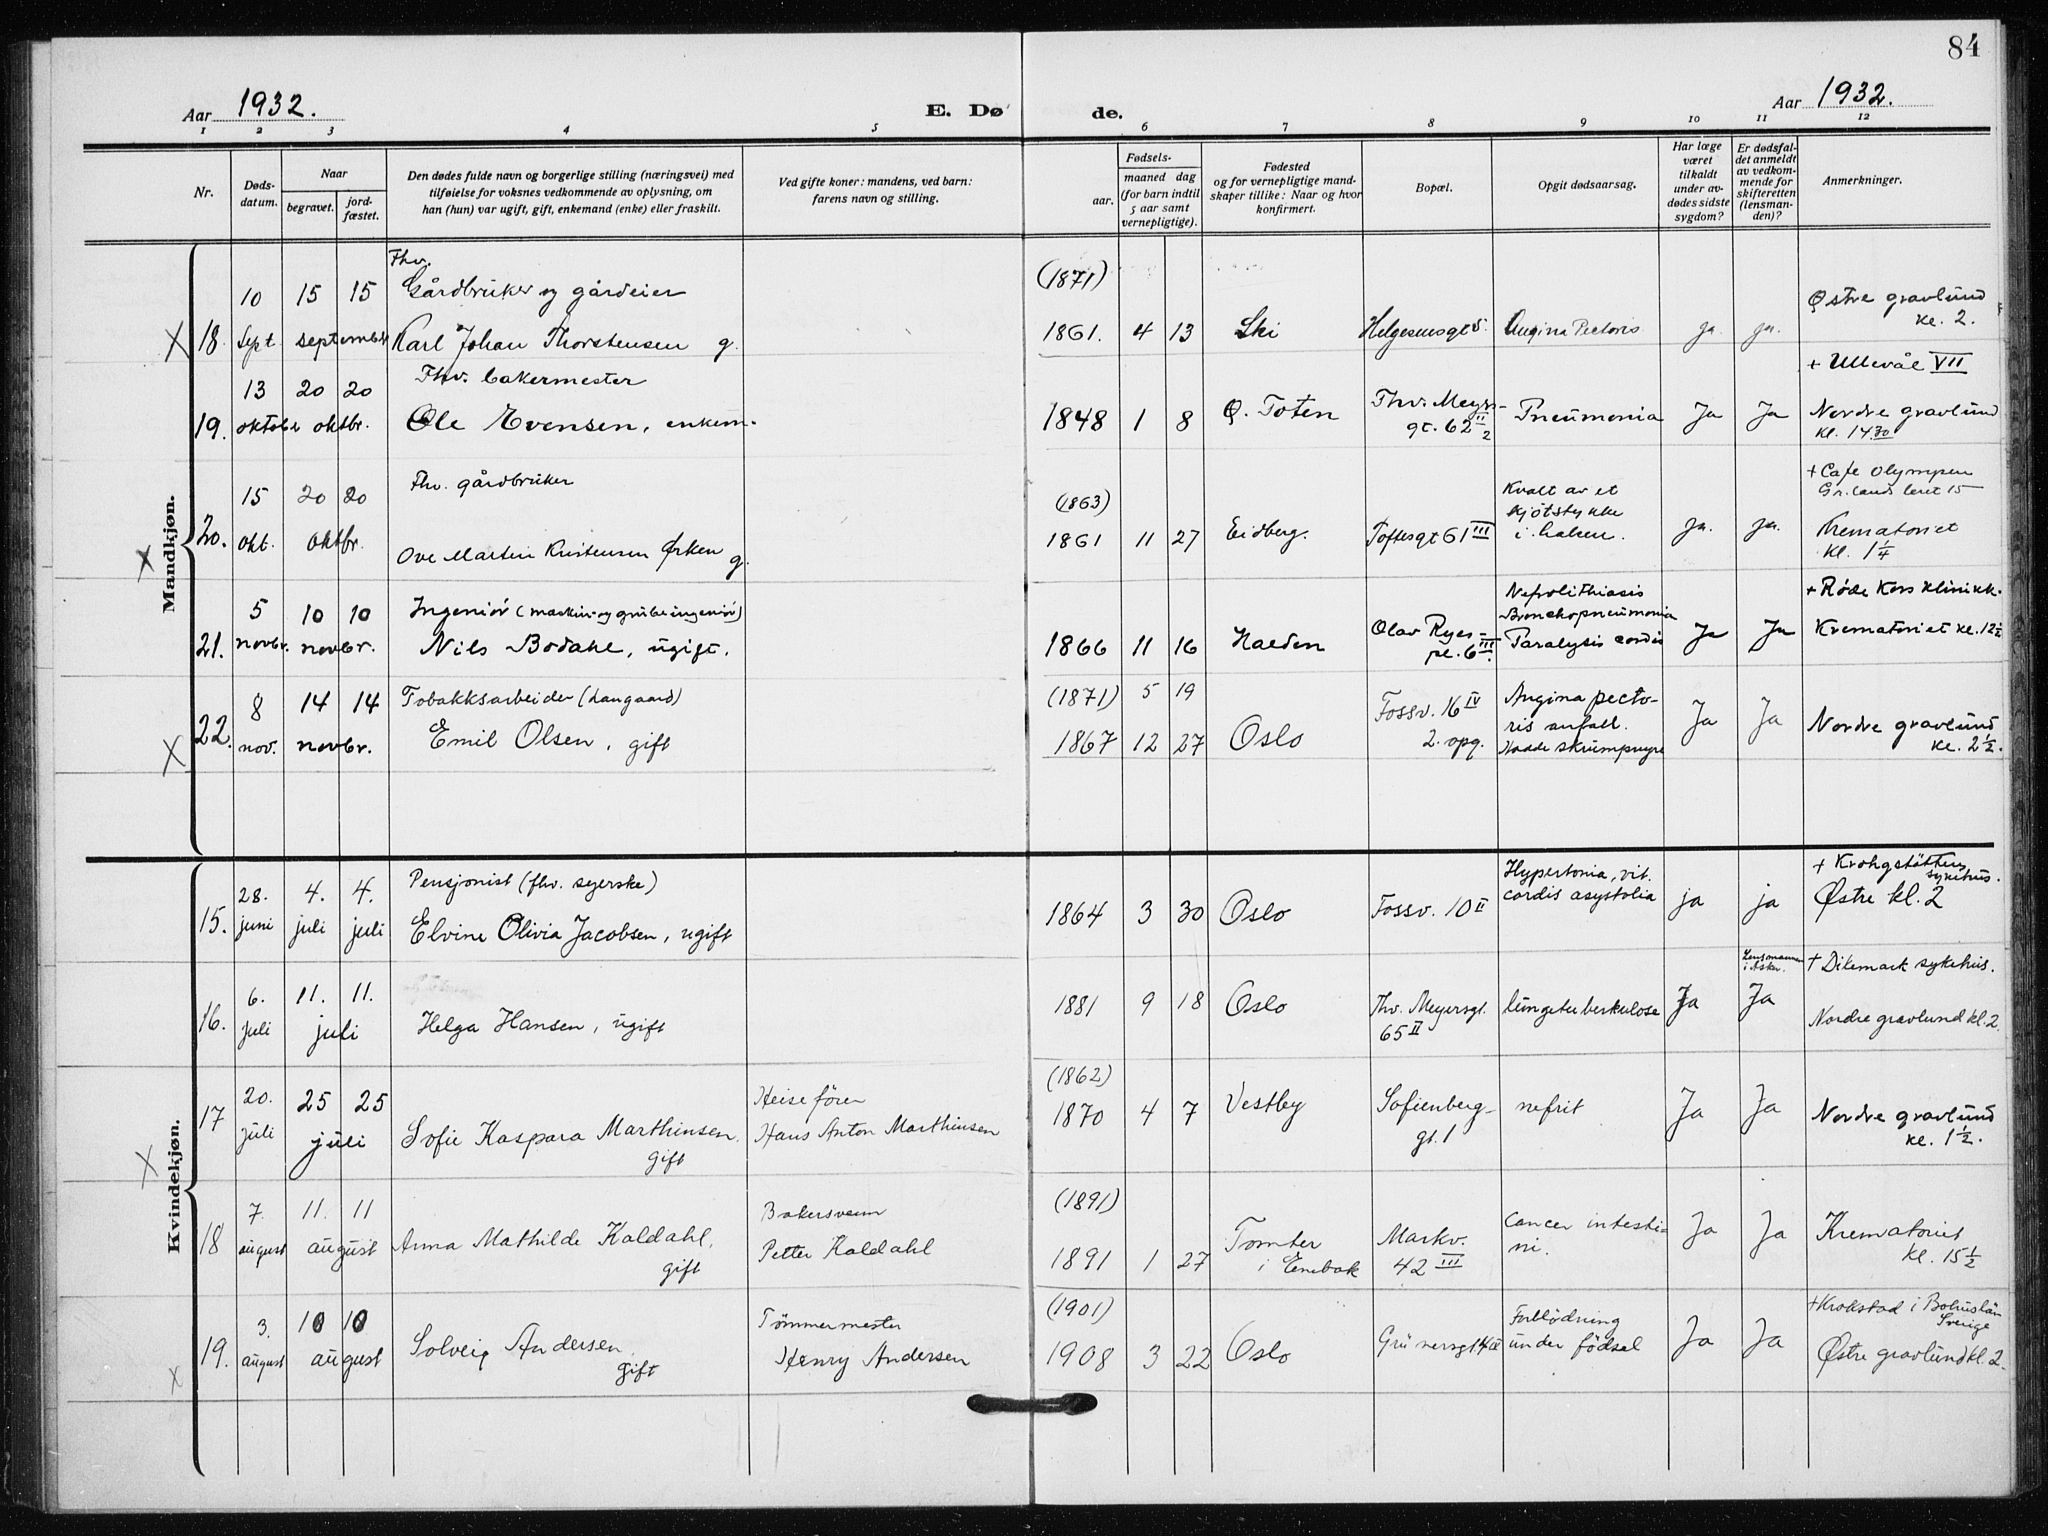 84
Aar 1932.
E. Dø
de.
Aar 1932.
1 2 3 4 5 6 7 8 9 10 11 12
Nr.
Døds-
datum.
Naar
begravet.
jord-
fæstet.
Den dødes fulde navn og borgerlige stilling (næringsvei) med
tilføielse for voksnes vedkommende av oplysning, om
han (hun) var ugift, gift, enkemand (enke) eller fraskilt.
Ved gifte koner: mandens, ved barn:
farens navn og stilling.
Fødsels-
aar.
maaned dag
(for barn indtil
5 aar samt
vernepligtige).
Fødested
og for vernepligtige mand-
skaper tillike: Naar og hvor
konfirmert.
Bopæl.
Opgit dødsaarsag.
Har læge
været
tilkaldt
under av-
dødes sidste
sygdom?
Er dødsfal-
det anmeldt
av vedkom-
mende for
skifteretten
(lensman-
den)?
Anmerkninger.
Mandkjøn.
Fhv.
10 15 15 Gårdbruker og gårdeier (1871) Østre gravlund
kl. 2.
18. Sept. september Karl Johan Thorstensen g. 1861. 4 13 Ski Helgesensgt 5. Angina Pectoris ja. ja.
+ Ullevål VII
13 20 20 Fhv. bakermester
19. oktober oktbr. Ole Evensen, enkem. 1848 1 8 Ø. Toten Thv. Meyers-
gt. 62 II 2 Pneumonia Ja Ja Nordre gravlund
kl. 14.30
15 20 20 Fhv. gårdbruker (1863) Kvalt av et
kjøtstykke
i halsen. + Cafe Olympen
Gr.lands leret 15
20. okt. oktbr. Ove Martin Kristensen Ørken g. 1861 11 27 Eidberg. Toftesgt 61 III ja. ja. Krematoriet
kl. 1 1/4
5 10 10 Ingeniør (maskin- og grubeingeniør) Nefrolithiasis
Bronchopneumonia + Røde Kors klinikk.
21. novbr. novbr. Nils Bodahl, ugift. 1866 11 16 Halden Olav Ryes-
pl. 6 III. Paralysis cordis Ja Ja Krematoriet kl. 12 1/2
8 14 14 Tobakksarbeider (Langaard) (1871) 5 19 Fossv. 16 IV
2. opg. Angina pecto-
ris anfall.
Hadde skrumpnyre
22. nov. novbr. Emil Olsen, gift 1867 12 27 Oslo Ja Ja Nordre gravlund
kl. 2 1/2.
Kvindekjøn.
28. 4. 4. Pensjonist (fhv. syerske) Hypertonia, vit.
cordis asystolia + Krohgstøtten
sykehus.
15. juni juli juli Elvine Olivia Jacobsen, ugift 1864 3 30 Oslo Fossv. 10 II ja ja Østre kl. 2
6. 11. 11. Lensmannen
i Asker. + Dikemark sykehus.
16. juli juli Helga Hansen, ugift 1881 9 18 Oslo Thv. Meyersgt.
65 II lungetuberkulose Ja Ja Nordre gravlund kl. 2.
20. 25 25 Heisefører (1862)
17 juli juli Sofie Kaspara Marthinsen,
gift Hans Anton Marthinsen 1870 4 7 Vestby Sofienberg-
gt. 1 nefrit Ja Ja Nordre gravlund
kl. 1 1/2.
7. 11. 11 Bakersvenn (1891)
18 august august Anna Mathilde Kaldahl,
gift Petter Kaldahl 1891 1 27 Tomter
i Enebak Markv.
42 III cancer intesti-
ni. Ja Ja Krematoriet
kl. 15 1/2
3. 10 10 Tømmermester (1901) Forblødning
under fødsel + Krokstad i Bohuslän
Sverige
19. august august Solveig Andersen,
gift Henry Andersen 1908 3 22 Oslo Grünersgt Ja Ja Østre gravlund kl. 2.